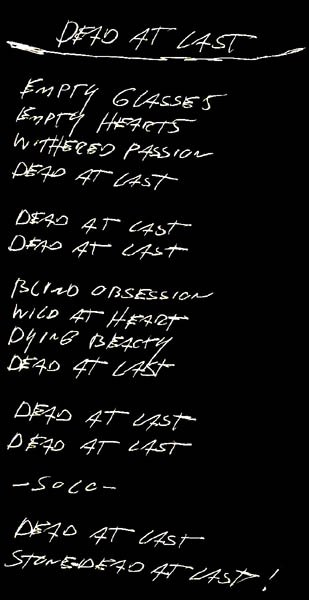 DEAD AT LAST
EMPTY GLASSES
EMPTY HEARTS
WITHERED PASSION
DEAD AT LAST
DEAD AT LAST
DEAD AT LAST
BLIND OBSESSION
WILD AT HEART
DYING BEAUTY
DEAD AT LAST
DEAD AT LAST
DEAD AT LAST
-SOLO-
DEAD AT LAST
STONEDEAD AT LAST!